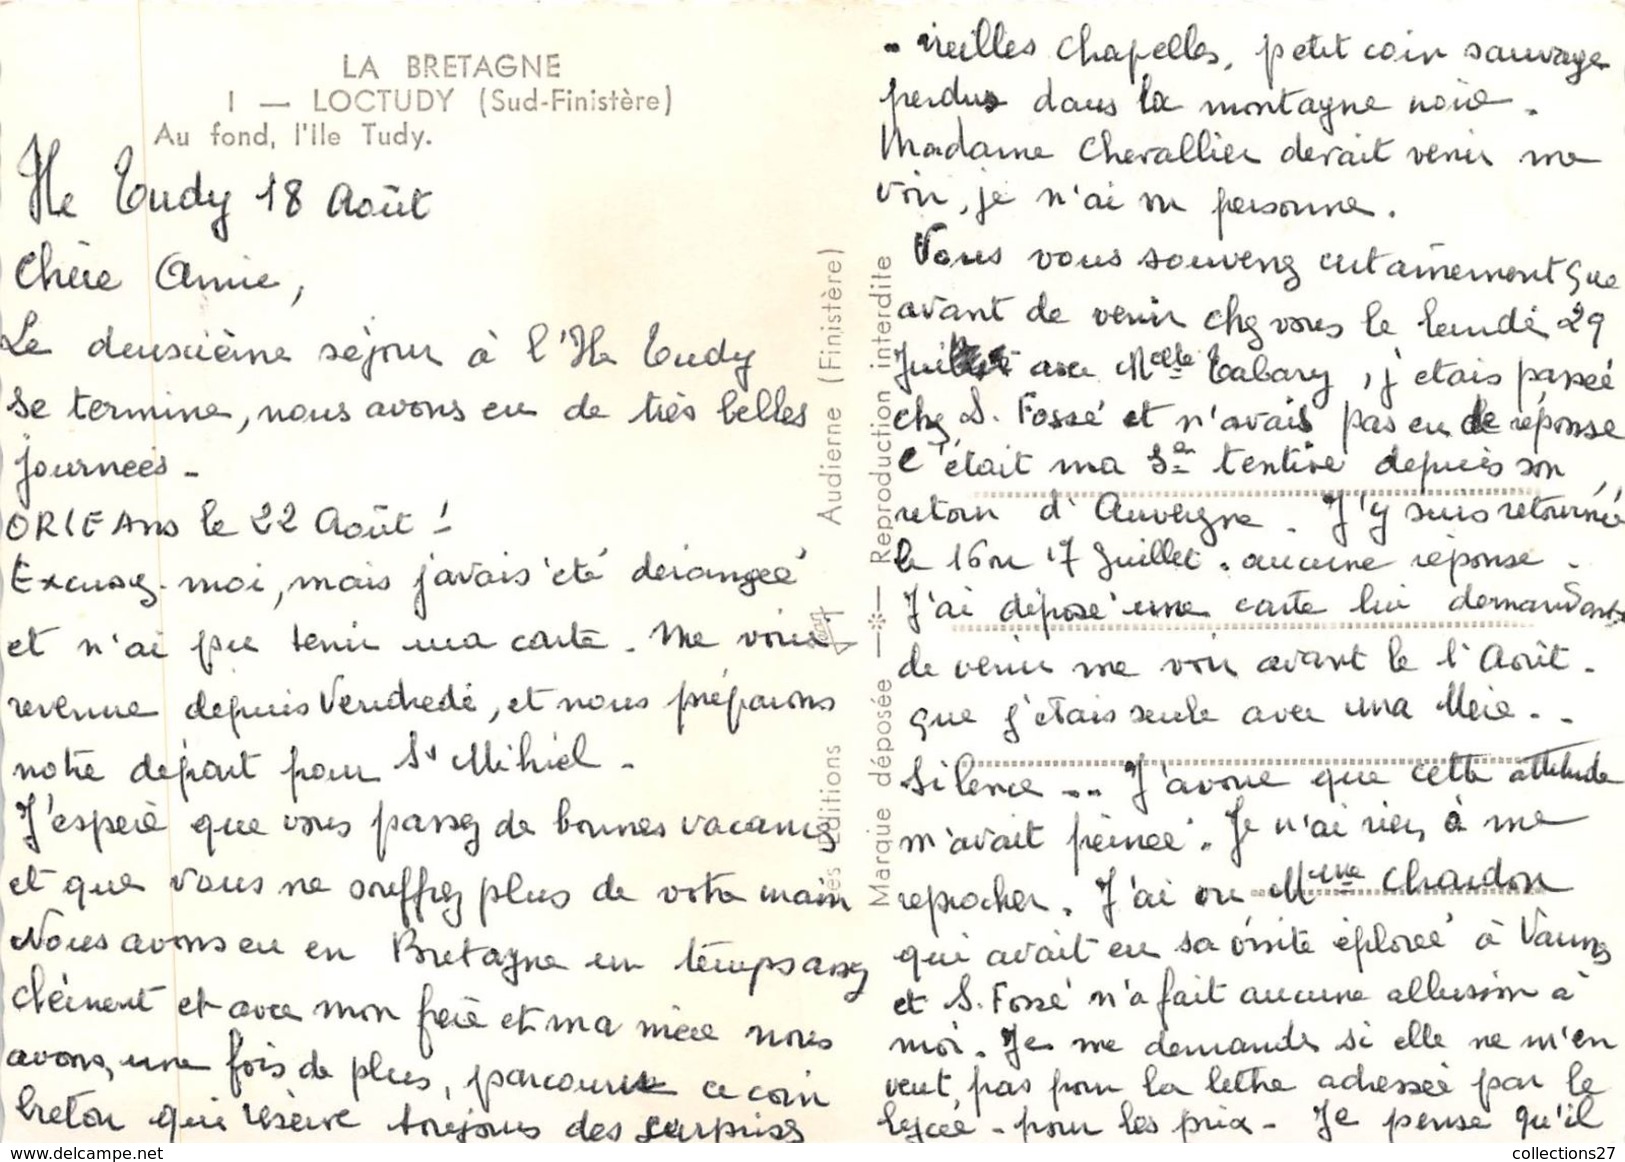 LA BRETAGNE
I — LOCTUDY (Sud-Finistère)
Au fond, l'Ile Tudy.
Ile Tudy 18 Août
Chère Amie,
Le deuxième séjour à l'Ile Tudy
se termine, nous avons eu de très belles
journées -
ORLEANS le 22 Août !
Excusez-moi, mais j'avais été dérangée
et n'ai pu tenir ma carte. Me voici
revenue depuis Vendredi, et nous préparons
notre départ pour St Mihiel.
J'espère que vous passez de bonnes vacances
et que vous ne souffrez plus de votre main
Nous avons eu en Bretagne un temps assez
clément et avec mon frère et ma mère nous
avons, une fois de plus, parcouru ce coin
breton qui réserve toujours des surprises
- vieilles chapelles, petit coin sauvage
perdus dans la montagne noire.
Madame Chevallier devait venir me
voir, je n'ai vu personne.
Vous vous souvenez certainement que
avant de venir chez vous le lundi 29
Juillet avec Melle Tabary, j'étais passée
chez S. Fossé et n'avais pas eu de réponse
C'était ma tentive depuis son
retour d'Auvergne. J'y suis retournée
le 16 ou 17 Juillet. aucune réponse.
J'ai déposé une carte lui demandant
de venir me voir avant le 1 Août.
que j'étais seule avec ma Mère..
Silence... J'avoue que cette attitude
m'avait peinée. Je n'ai rien à me
reprocher. J'ai vu Mme Chardon
qui avait eu sa visite éplorée à Vannes
et S. Fossé n'a fait aucune allusion à
moi. Je me demande si elle ne m'en
veut, pas pour la lettre adressée par le
lycée - pour les prix - Je pense qu'il
Les Editions Jos Audierne (Finistère)
Marque déposée —✻— Reproduction interdite
collections27